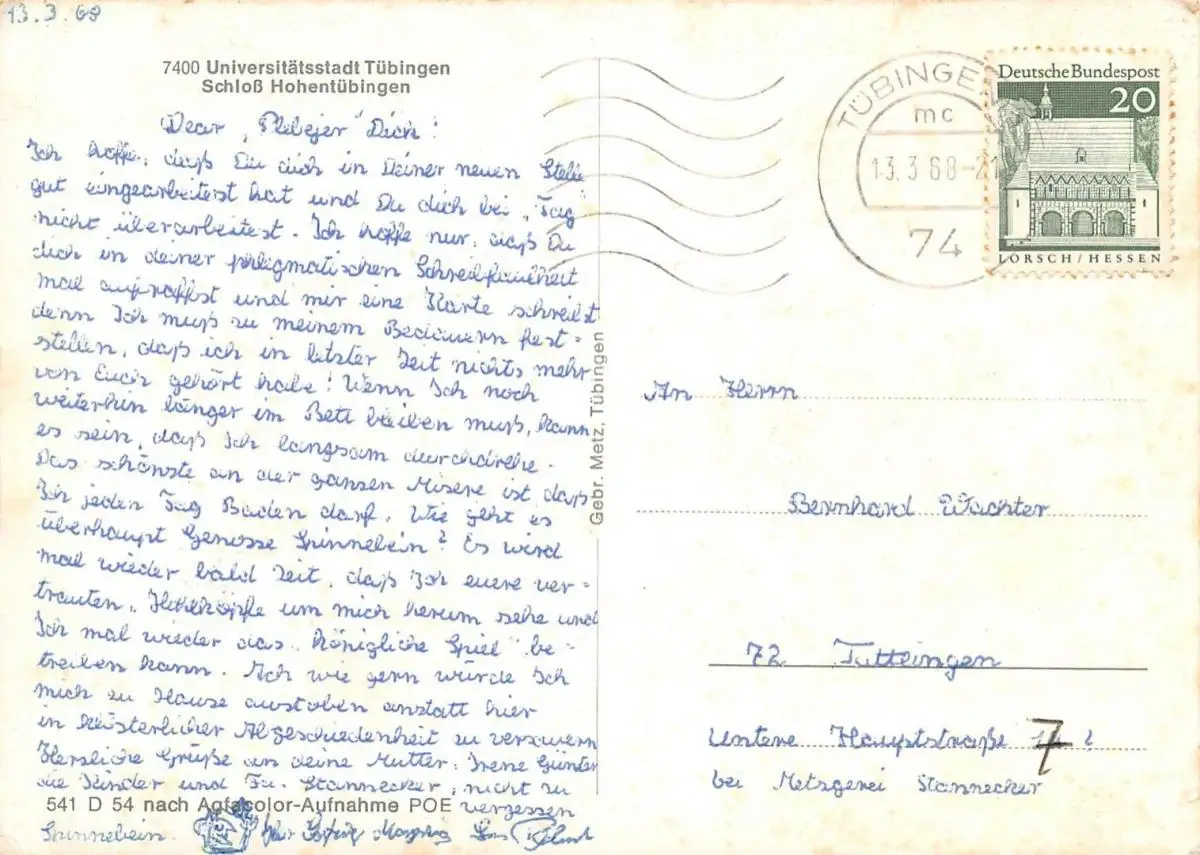 13.3.68
7400 Universitätsstadt Tübingen
Schloß Hohentübingen
Dear "Plebejer" Dich!
Ich hoffe, daß Du dich in Deiner neuen Stelle
gut eingearbeitest hat und Du dich bei "Tag"
nicht überarbeitest. Ich hoffe nur, daß Du
dich in deiner phlegmatischen Schreibfaulheit
mal aufraffst und mir eine Karte schreibst
denn Ich muß zu meinem Bedauern fest-
stellen, daß ich in letzter Zeit nichts mehr
von Euch gehört habe! Wenn Ich noch
weiterhin länger im Bett bleiben muß, kann
es sein, daß Ich langsam durchdrehe.
Das schönste an der ganzen Misere ist daß
Ich jeden Tag Baden darf. Wie geht es
überhaupt Genosse Spinnebein? Es wird
mal wieder bald Zeit, daß Ich euere ver-
trauten um mich herum sehe und
Ich mal wieder das "Königliche Spiel" be-
treiben kann. Ach wie gern würde Ich
mich zu Hause austoben anstatt hier
in klösterlicher Abgeschiedenheit zu versauern
Herzliche Grüße an deine Mutter, Irene Günter
die Kinder und Fa. Stannecker, nicht zu
vergessen
Spinnebein.
541 D 54 nach Agfacolor-Aufnahme POE
Gebr. Metz, Tübingen
TÜBINGEN
mc
13.3.68-21
74
Deutsche Bundespost
20
LORSCH/HESSEN
An Herrn
Bernhard Wachter
72 Tuttlingen
Untere Hauptstraße 7
bei Metzgerei Stannecker